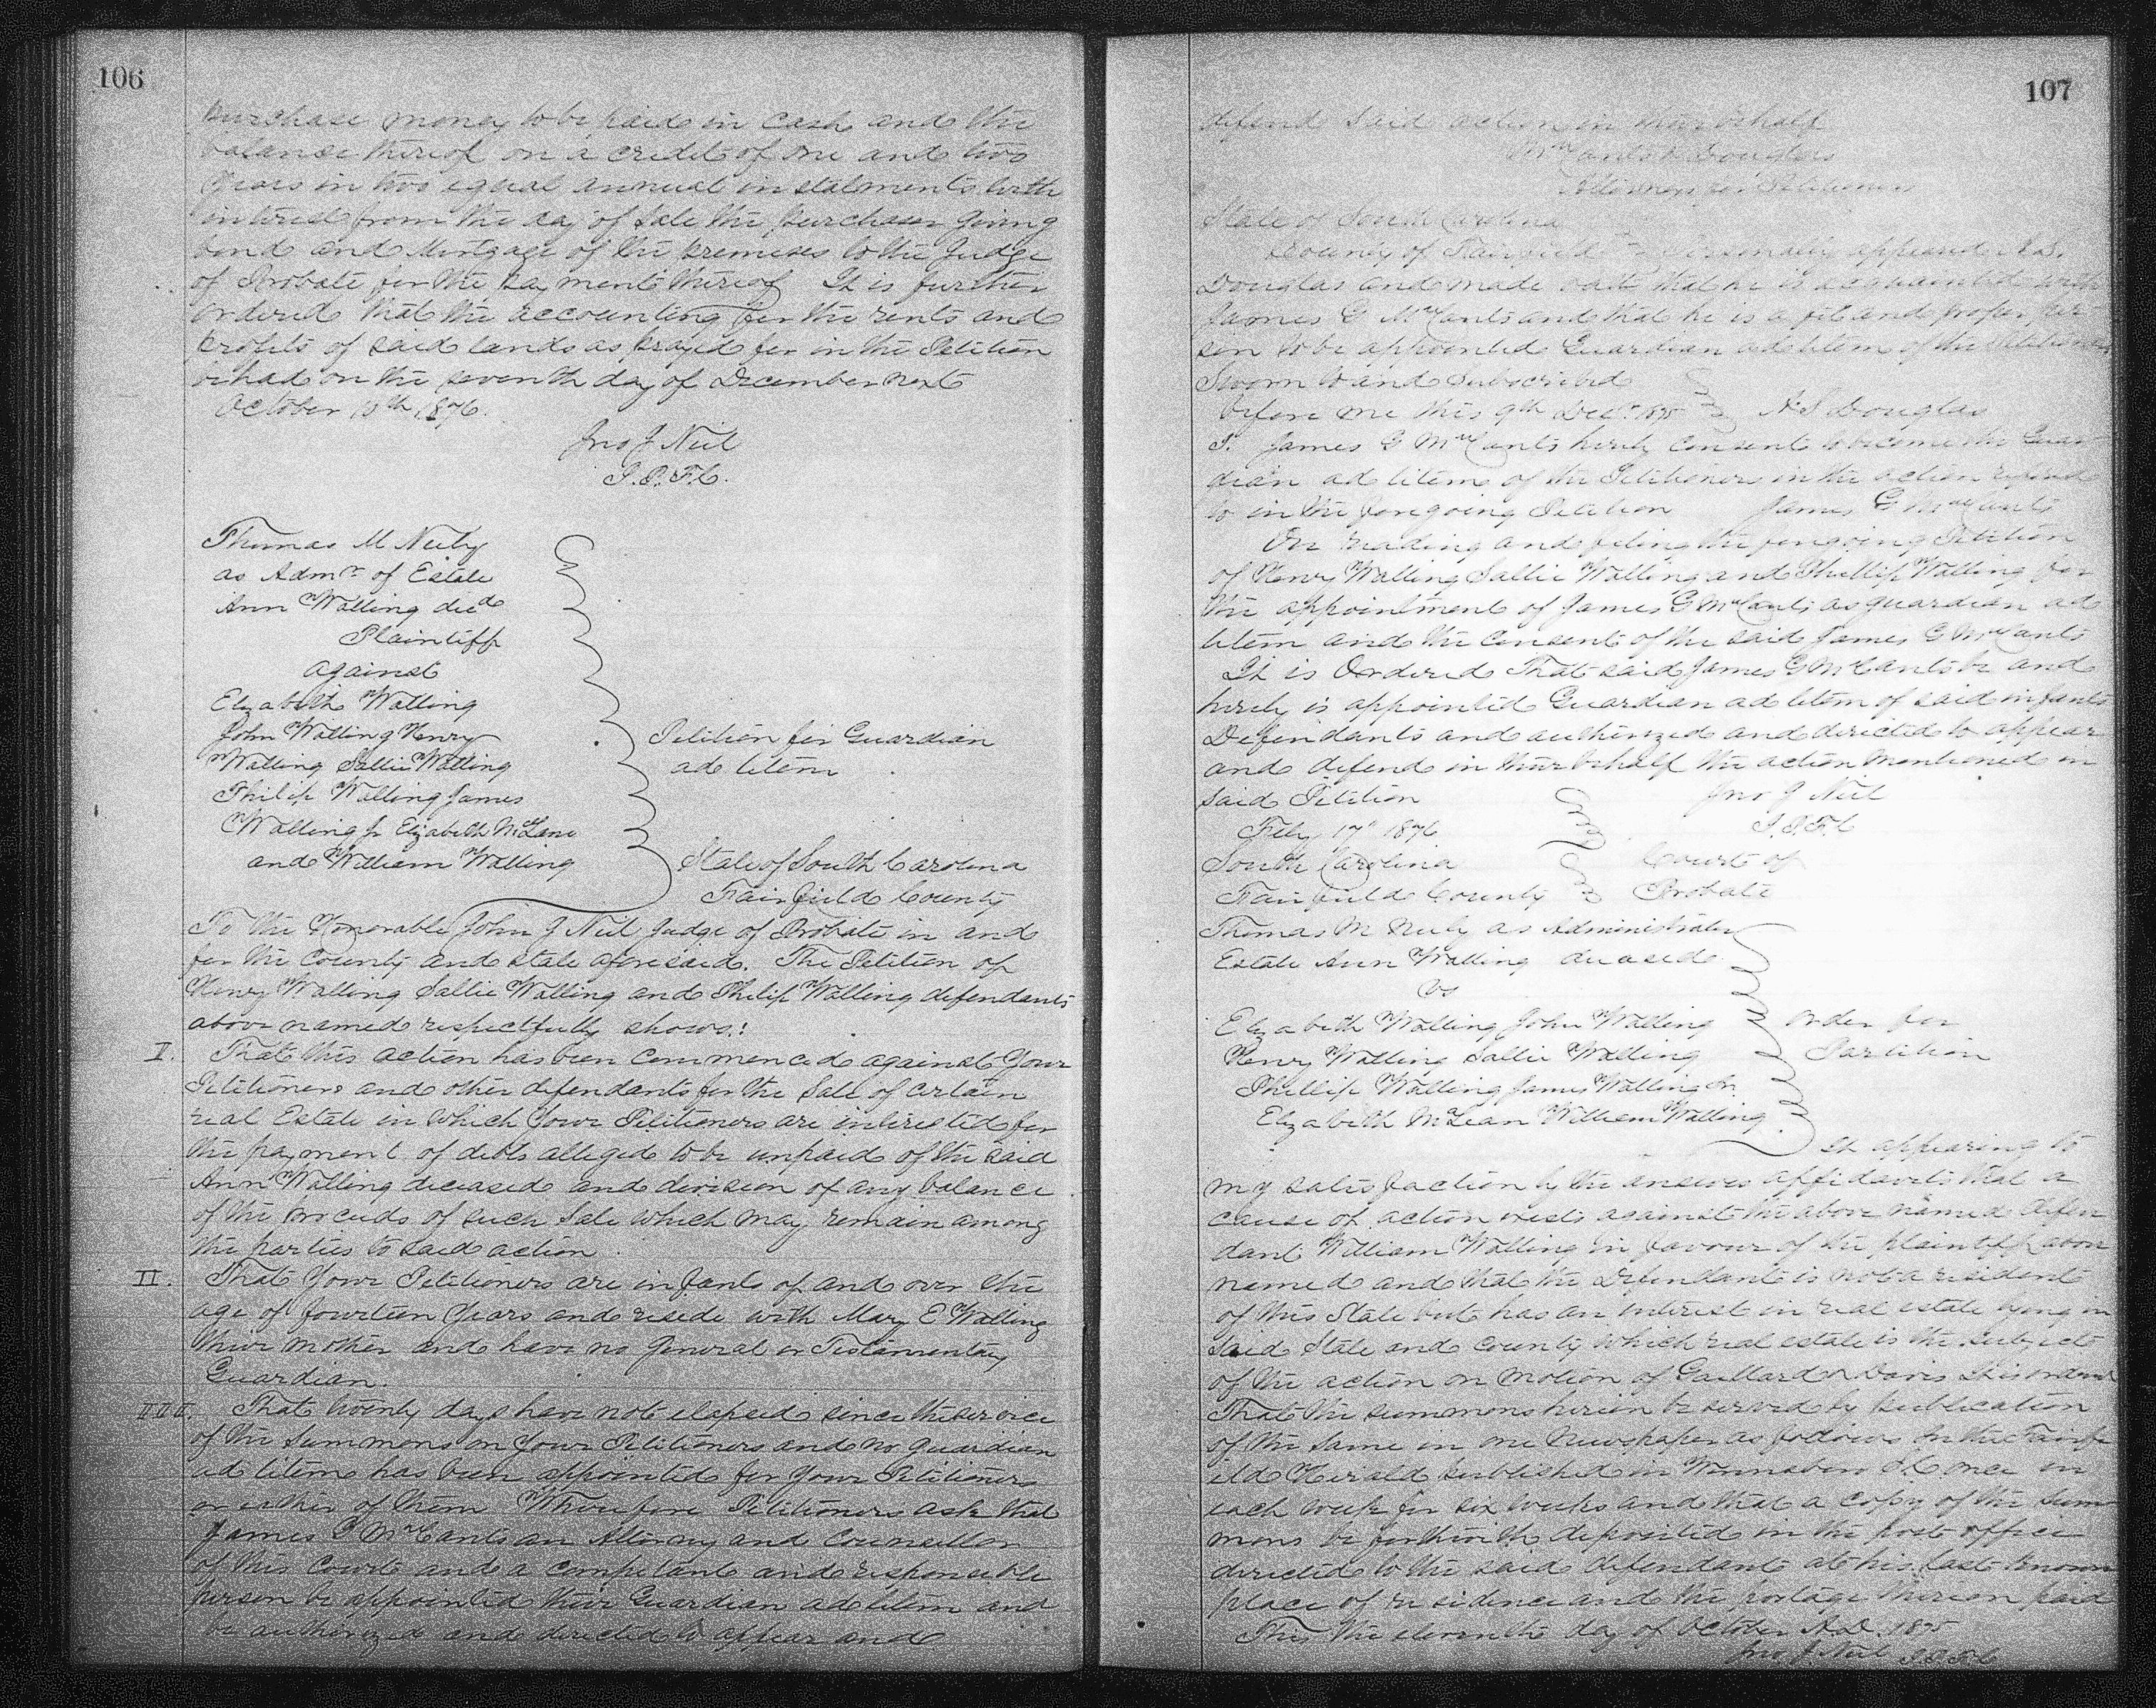 106
purchase money to be paid in Cash and the
balance thereof on a credit of one and two
Years in two equal annual instalments with
interest from the day of Sale the purchaser giving
bond and Mortgage of the premises to the Judge
of Probate for the payment thereof It is further
ordered that the accounting for the rents and
profits of said lands as prayed for in the Petition
be had on the seventh day of December next
October 10th 1876.
Jno J Neil
J.P.F.C.
Thomas M Neely
as Admr of Estate
Ann Walling decd
Plaintiff
against
Elizabeth Walling
John Walling Henry
Walling Sallie Walling
Philip Walling James
Walling Jr Elizabeth McLane
and William Walling
Petition for Guardian
ad litem
State of South Carolina
Fairfield County
To the Honorable John J Neil Judge of Probate in and
for the County and State aforesaid. The Petition of
Henry Walling Sallie Walling and Philip Walling defendants
above named respectfully shows:
I. That this action has been commenced against Your
Petitioners and other defendants for the Sale of certain
real Estate in which Your Petitioners are interested for
the payment of debts alleged to be unpaid of the said
Ann Walling deceased and division of any balance
of the proceeds of such Sale which may remain among
the parties to said action
II. That Your Petitioners are infants of and over the
age of fourteen Years and reside with Mary E Walling
their mother and have no General or Testamentary
Guardian.
III. That twenty days have not elapsed since the service
of the Summons on Your Petitioners and no guardian
ad litem has been appointed for Your Petitioners
or either of them Wherefore Petitioners ask that
James G McCants an Attorney and Councellor
of this Court and a competant and responsible
person be appointed their Guardian ad litem and
be authorized and directed to appear and
107
defend said action in their behalf
McCants & Douglas
Attorneys for Petitioners
State of South Carolina
County of Fairfield Personally appeared A.S.
Douglas and made oath that he is acquainted with
James G McCants and that he is a fit and proper per
son to be appointed Guardian ad litem of the Petitioners
Sworn to and Subscribed
before me this 9th Decr 1875 A S Douglas
I. James G McCants hereby consent to become the Guar
dian ad litem of the Petitioners in the action refered
to in the foregoing Petition James G McCants
On reading and filing the foregoing Petition
of Henry Walling Sallie Walling and Phillip Walling for
the appointment of James G McCants as guardian ad
litem and the Consent of the said James G McCants
It is Ordered That said James G McCants be and
hereby is appointed Guardian ad litem of said infants
Defendants and authorized and directed to appear
and defend in their behalf the action mentioned in
said Petition Jno J Neil
Feby 17th 1876 J.P.F.C
South Carolina Court of
Fairfield County Probate
Thomas M Neely as Administrator
Estate Ann Walling deceased
vs
Elizabeth Walling John Walling
Henry Walling Sallie Walling
Phillip Walling James Walling Jr.
Elizabeth McLean William Walling.
Order for
Partition
It appearing to
my satisfaction by the answer affidavits that a
cause of action exists against the above named defen
dant William Walling in favour of the plaintiff above
named and that the Defendant is not a resident
of this State but has an interest in real estate lying in
Said State and County which real estate is the subject
of the action on motion of Gaillard & Davis It is ordered
That the summons herein be served by publication
of the same in one Newspaper as follows In the Fairf
ield Herald published in Winnsboro S.C once in
each week for six weeks and that a copy of the Sum
mons be forthwith deposited in the post office
directed to the said defendant at his last known
place of residence and the postage thereon paid
This the eleventh day of October A.D. 1875
Jno J. Neil J.P.F.C